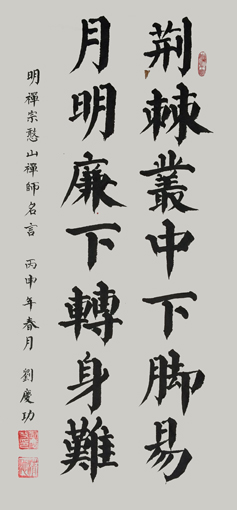 荆棘叢中下脚易
月明廉下轉身難
明禪宗愁山禪師名言 丙申年春月 劉慶功